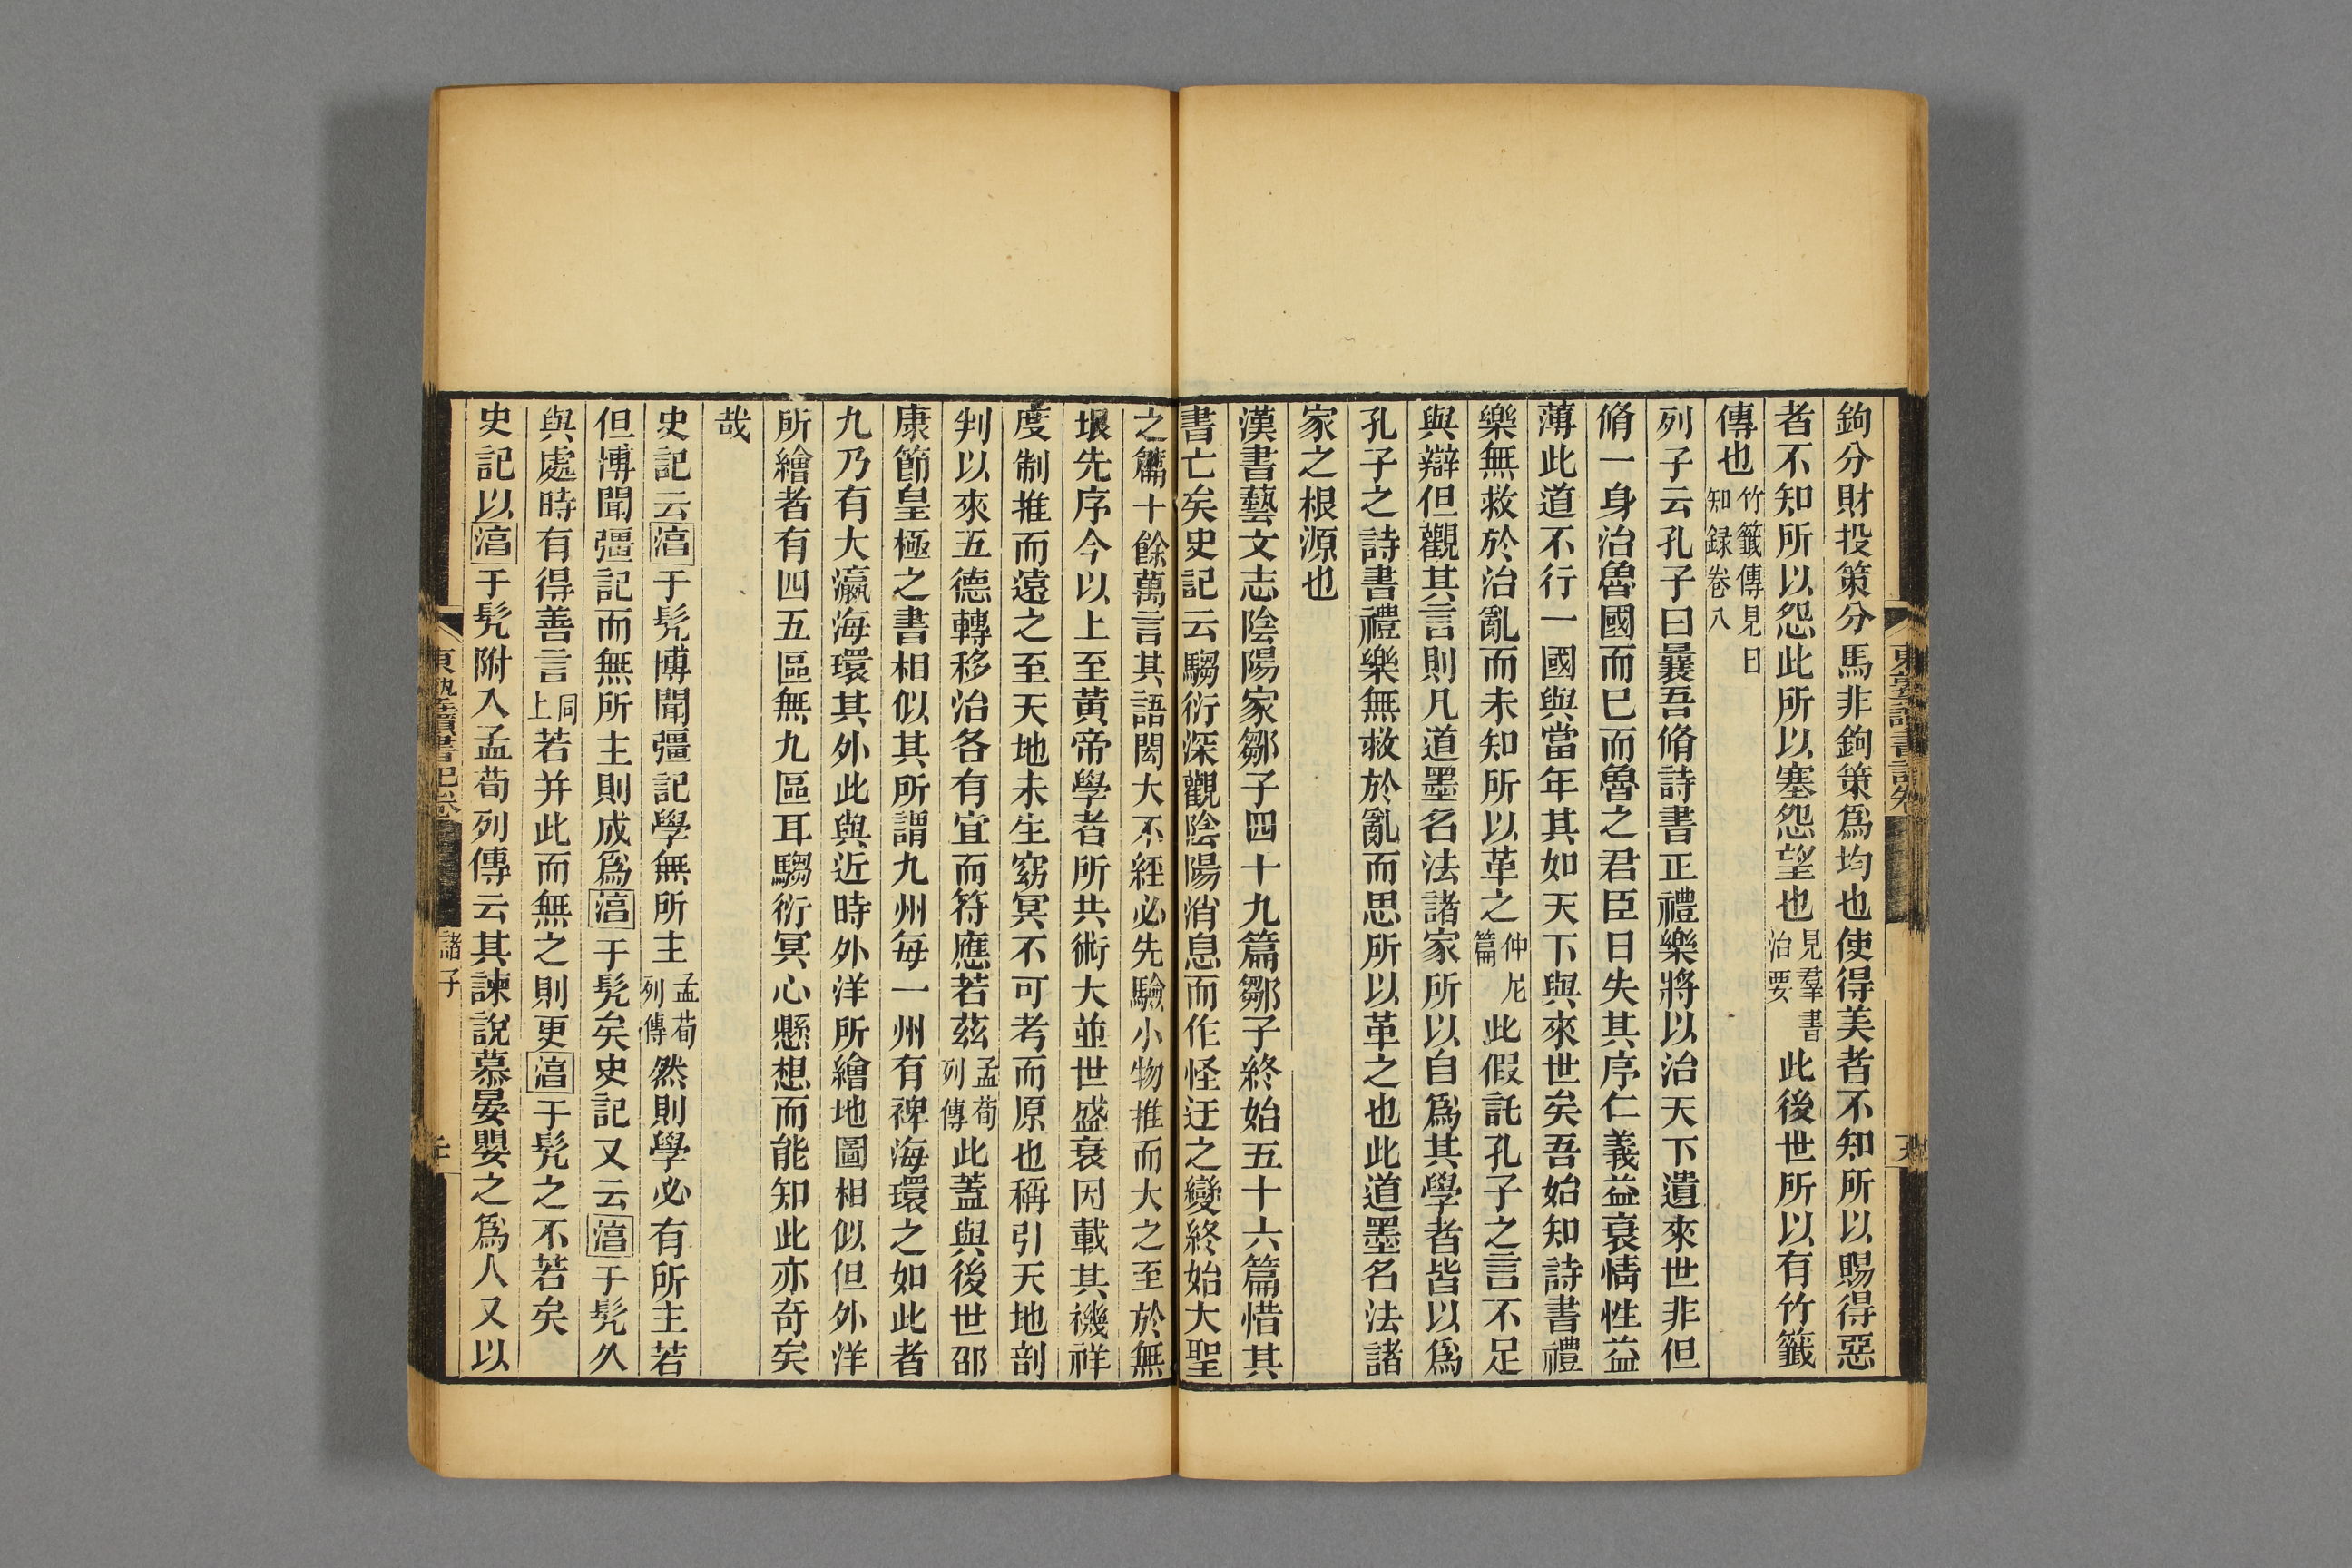 鉤分財投策分馬非鉤策爲均也使得美者不知所以賜得惡
者不知所以怨此所以塞怨望也見羣書治要此後世所以有竹籤
傳也竹籤傳見日知録卷八
列子云孔子曰曩吾脩詩書正禮樂將以治天下遺來世非但
脩一身治魯國而巳而魯之君臣日失其序仁義益衰情性益
薄此道不行一國與當年其如天下與來世矣吾始知詩書禮
樂無救於治亂而未知所以革之仲尼篇此假託孔子之言不足
與辯但觀其言則凡道墨名法諸家所以自爲其學者皆以爲
孔子之詩書禮樂無救於亂而思所以革之也此道墨名法諸
家之根源也
漢書藝文志陰陽家鄒子四十九篇鄒子終始五十六篇惜其
書亡矣史記云騶衍深觀陰陽消息而作怪迂之變終始大聖
之篇十餘萬言其語閎大不經必先驗小物推而大之至於無
垠先序今以上至黃帝學者所共術大並世盛衰因載其禨祥
度制推而遠之至天地未生窈冥不可考而原也稱引天地剖
判以來五德轉移治各有宜而符應若茲孟荀列傳此蓋與後世邵
康節皇極之書相似其所謂九州每一州有裨海環之如此者
九乃有大瀛海環其外此與近時外洋所繪地圖相似但外洋
所繪者有四五區無九區耳騶衍冥心懸想而能知此亦奇矣
哉
史記云湻于髠博聞彊記學無所主孟荀列傳然則學必有所主若
但博聞彊記而無所主則成爲湻于髠矣史記又云湻于髠久
與處時有得善言同上若并此而無之則更湻于髠之不若矣
史記以湻于髠附入孟荀列傳云其諫說慕晏嬰之爲人又以
東塾讀書記卷
諸子